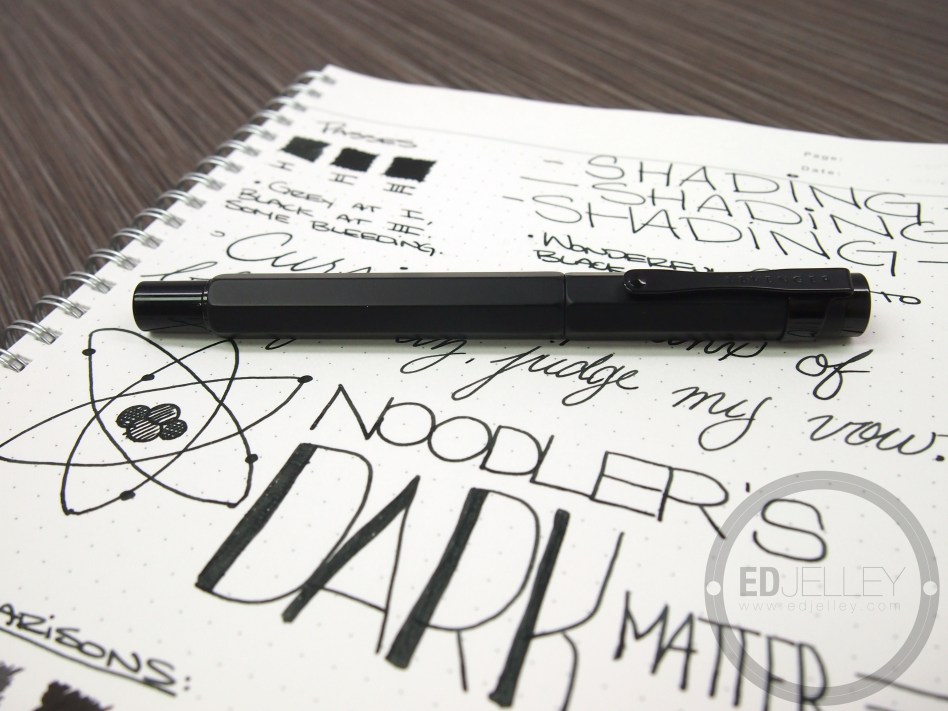 PASSES
I II III
• GREY AT I,
BLACK AT III,
SOME BLEEDING.
Page:
Date:
- SHADiNG
- SHADiNG
- SHADiNG -
• WONDERFUL
BLACK
TO
of
judge my vow.
NOODLER'S
DARK
MATTER
ARiSONS:
EDJELLEY
www.edjelley.com